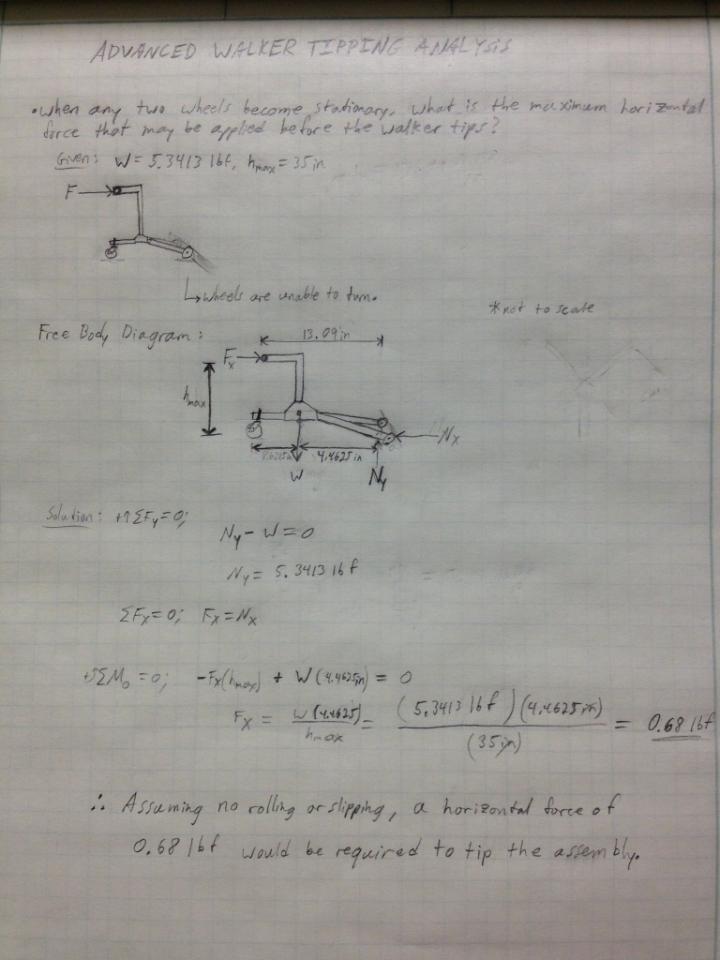 ADVANCED WALKER TIPPING ANALYSIS
• When any two wheels become stationary, what is the maximum horizontal
force that may be applied before the walker tips?
Given: W = 5.3413 lbf, hmax = 35 in
F
↳ wheels are unable to turn.
* not to scale
Free Body Diagram:
13.09 in
Fx
hmax
Nx
4.4625 in
W
Ny
Solution: +↑ΣFy = 0;
Ny - W = 0
Ny = 5.3413 lbf
ΣFx = 0; Fx = Nx
+↺ΣMo = 0; -Fx(hmax) + W(4.4625in) = 0
Fx = W(4.4625)/hmax = (5.3413 lbf)(4.4625in)/(35in) = 0.68 lbf
∴ Assuming no rolling or slipping, a horizontal force of
0.68 lbf would be required to tip the assembly.